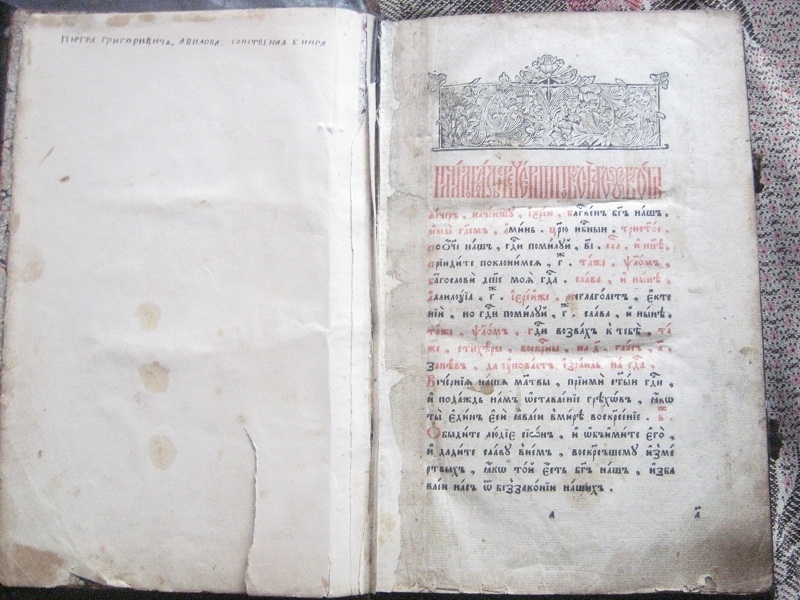 ПЕТРА ГРИГОРИЕВИЧА, СОПСТВЕНАЯ КНИГА
начѝншу , і҆ере́и , бл҃гве́нъ бг҃ъ на́шъ ,
и҆мы̀ гл҃емъ , а҆ми́нь . цр҃ю нбⷭ҇ныи . трист҃ое .
ѻ҆́ч҃е на́шъ , гдⷭ҇и поми́луй , в҃і . сла́ , и҆ ны́нѣ ,
прїиди́те поклони́мся , г҃ . та́же , ѱало́мъ ,
бл҃гословѝ дш҃е моѧ̀ гдⷭ҇а . сла́ва , и҆ ны́нѣ ,
а҆ллилу́їа , г҃ . і҆ере́йже , неглаго́летъ , є҆кте
нїи́ , но гдⷭ҇и поми́луй , г҃ . сла́ва , и҆ ны́нѣ ,
та́же , ѱало́мъ , гдⷭ҇и возва́хъ к тебѣ̀ , та
же , стихѣ́ры , воскрⷭ҇ны , на д҃ . гла́съ , а҃
Запѣ́въ , да ᲂу҆пова́етъ і҆зра́иль на гдⷭ҇а .
Вече́рнїѧ на́шѧ мл҃твы , прїимѝ ст҃ы́и гдⷭ҇и ,
и҆ пода́ждь на́мъ ѡ҆ставле́нїе грѣхо́въ , ꙗ҆́кѡ
ты̀ є҆ди́нъ є҆сѝ ꙗ҆вле́и в ми́рѣ воскресе́нїе . в҃
Обыди́те лю́дїе сїѡ́нъ , и҆ ѡ҆бъими́те є҆го̀ ,
и҆ дади́те сла́ву в не́мъ , воскре́сшему и҆зме́
ртвыхъ , ꙗ҆́кѡ то́й є҆́сть бг҃ъ на́шъ , и҆зба́
влеи на́съ ѿ беззако́нїи на́шихъ .
а а҃